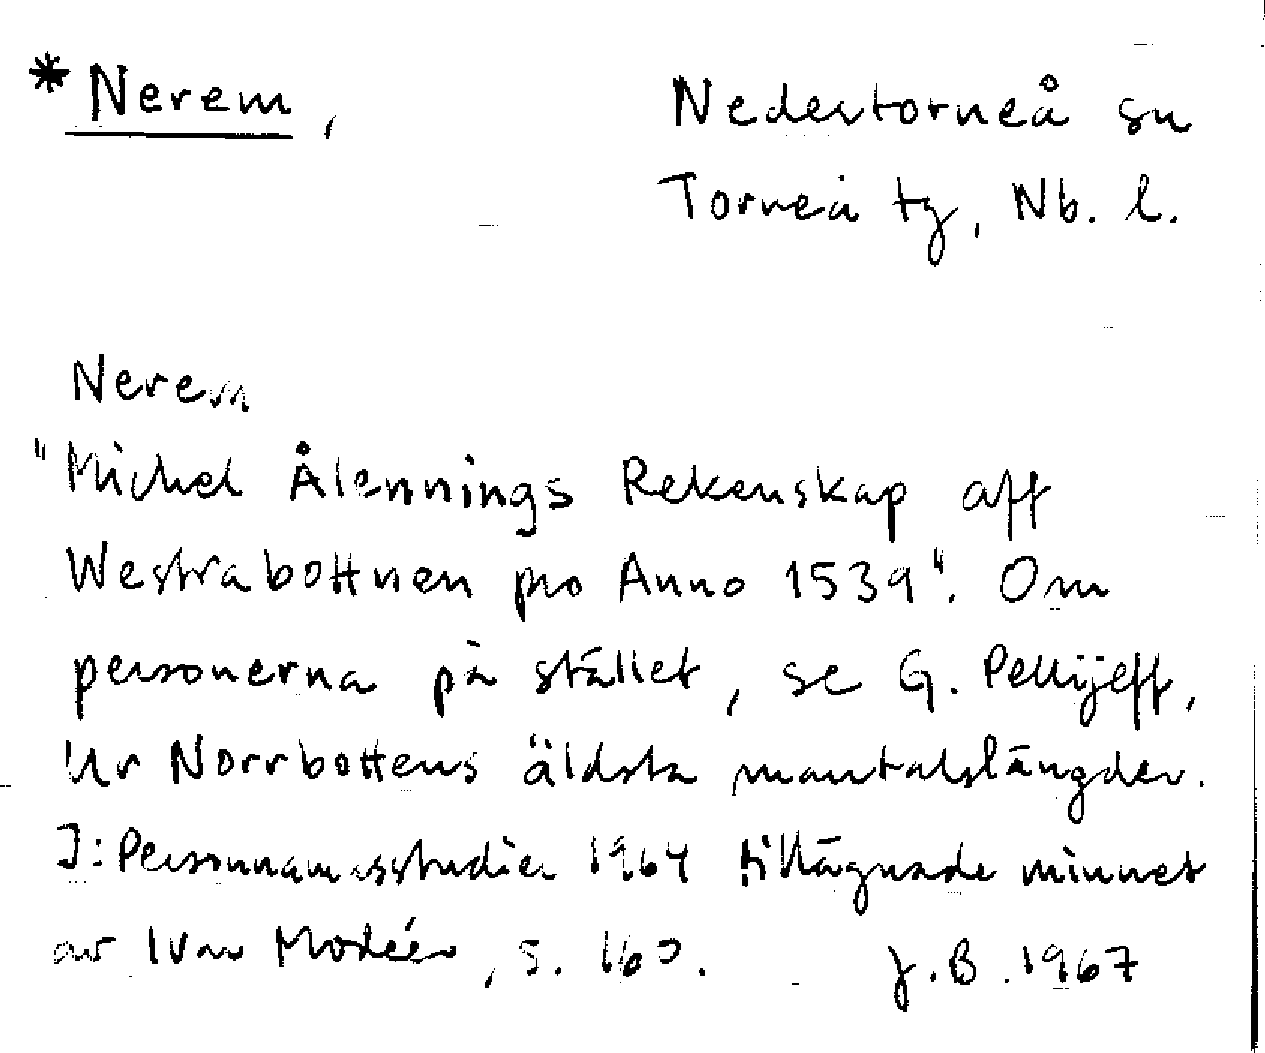 * Nerem, Nedertorneå sn
Torneå tg, Nb. l.
Nerem
"Michel Ålennings Rekenskap aff
Westrabottnen pro Anno 1539". Om
personerna på stället, se G. Pellijeff,
Ur Norrbottens äldsta mantalslängder.
I: Personnamnsstudier 1964 tillägnade minnet
av Ivar Modéer, s. 160. J.B. 1967